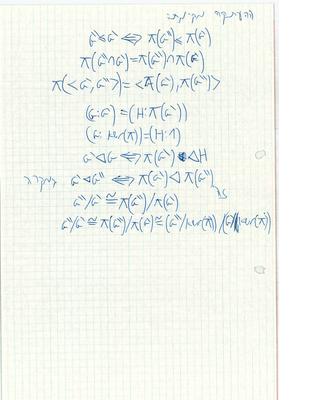 G'≤G'' ⟺ π(G'')≤π(G')
π(G''∩G')=π(G'')∩π(G')
π(<G',G''>)=<π(G'),π(G'')>
(G:G')=(H:π(G'))
(G:ker(π))=(H:1)
G'⊲G ⟺ π(G')⊲H
G'⊲G'' ⟺ π(G')⊲π(G'')
G''/G'≅π(G'')/π(G')
G''/G'≅π(G'')/π(G')≅(G''/ker(π))/(G'/ker(π))